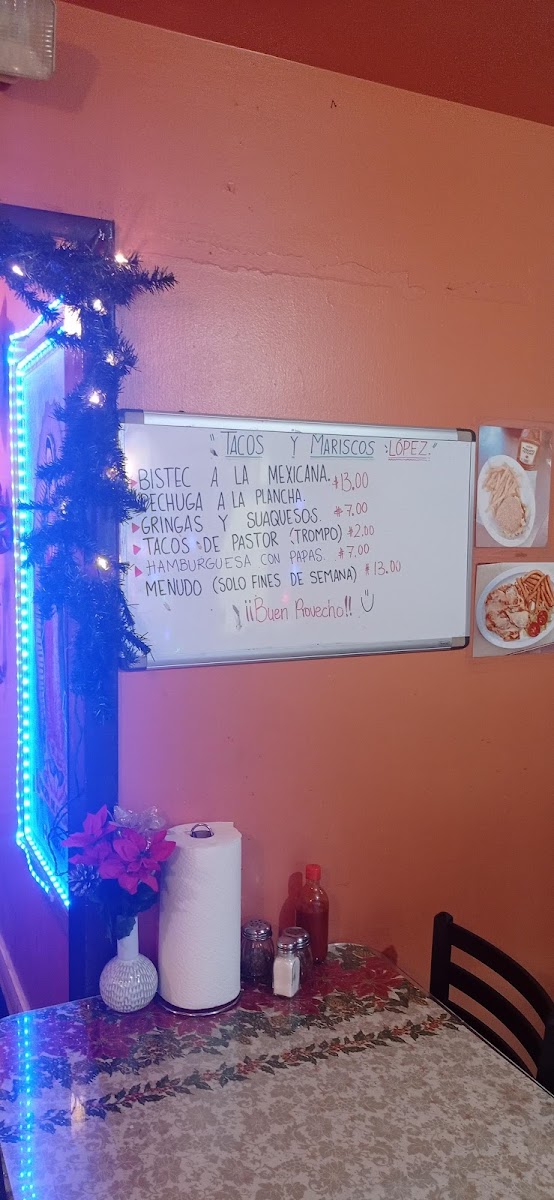 "TACOS Y MARISCOS "LÓPEZ."
BISTEC A LA MEXICANA. $13.00
PECHUGA A LA PLANCHA.
GRINGAS Y SUAQUESOS. $7.00
TACOS DE PASTOR (TROMPO) $2.00
HAMBURGUESA CON PAPAS. $7.00
MENUDO (SOLO FINES DE SEMANA) $13.00
¡¡Buen Provecho!!